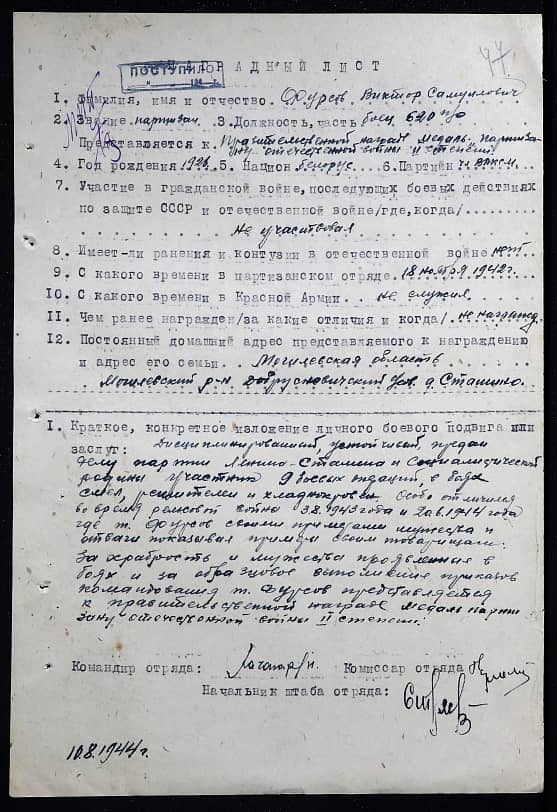 47.
НАГРАДНЫЙ ЛИСТ
ПОСТУПИЛО
194 г.
1. Фамилия, имя и отчество. Фурсов. Виктор Самуилович
2. Звание партизан. 3. Должность, часть боец 620 п/о
Представляется к Правительственной награде медаль. партиза-
ну отечественной войны II степени
4. Год рождения 1926. 5. Национ белорус 6. Партийн чл. ВЛКСМ.
7. Участие в гражданской войне, последующих боевых действиях
по защите СССР и отечественной войне/где, когда/
Не участвовал
8. Имеет-ли ранения и контузии в отечественной войне нет
9. С какого времени в партизанском отряде. 18 ноября 1942 г.
10. С какого времени в Красной Армии. не служил
11. Чем ранее награжден/за какие отличия и когда/ не награжд.
12. Постоянный домашний адрес представляемого к награждению
и адрес его семьи. Могилевская область
Могилевский р-н д. Сташино.
I. Краткое, конкретное изложение личного боевого подвига или
заслуг: Дисциплинированный, устойчивый, предан
делу партии Ленина-Сталина и Социалистической
родины участник 9 боевых в боях
смел, решителен и хладнокровен. Особо отличился
во время рельсовой войны 3.8.1943 года и 1944 года
где т. Фурсов своими примерами мужества и
отваги показывал пример своим товарищам.
За храбрость и мужества проявленные в
боях и за образцовое выполнение приказов
командования т. Фурсов представляется
к правительственной награде медаль парти
зану отечественной войны II степени.
Командир отряда: Комиссар отряда
Начальник штаба отряда:
10.8.1944 г.